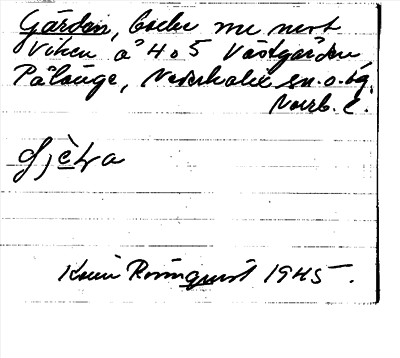 Gården, backe me mest
Viken å 4 o 5 Västgården
Pålänge, Nederkalix sn. o. tg.
Norrb. l.
Karin Rosenquist 1945.